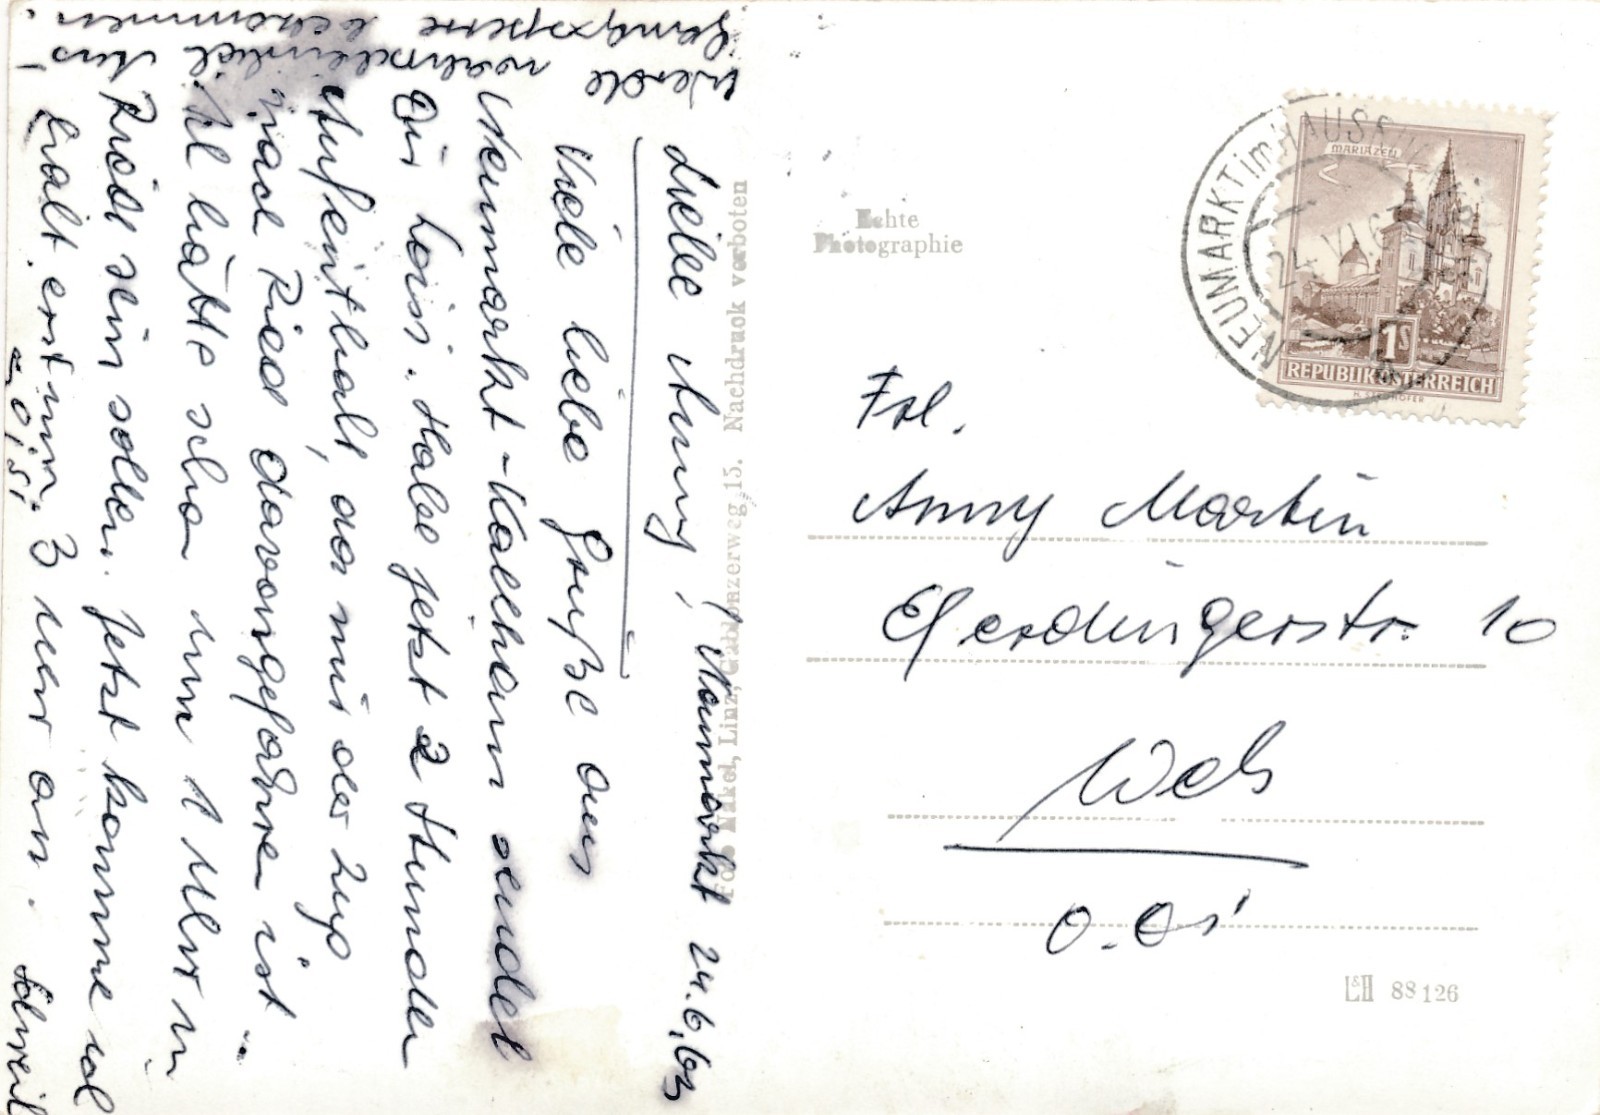 Neumarkt 24.6.63
Liebe Anny!
Viele liebe Grüße aus
Neumarkt-Kallham sendet
Dir Lois. Habe jetzt 2 Stunden
Aufenthalt, da mir der Zug
nach Ried davongefahren ist.
Ich hätte schon um 1 Uhr in
Ried sein sollen. Jetzt komme ich
halt erst um 3 Uhr an.
Werde wahrscheinlich Aus-
gangssperre bekommen.
Echte
Photographie
Foto Näkel, Linz, Gablonzerweg 15. Nachdruck verboten
NEUMARKT im HAUSR
24. VI
MARIAZELL
1S
REPUBLIK ÖSTERREICH
Frl.
Anny Martin
Eferdingerstr. 10
Wels
O.Ö.
88126